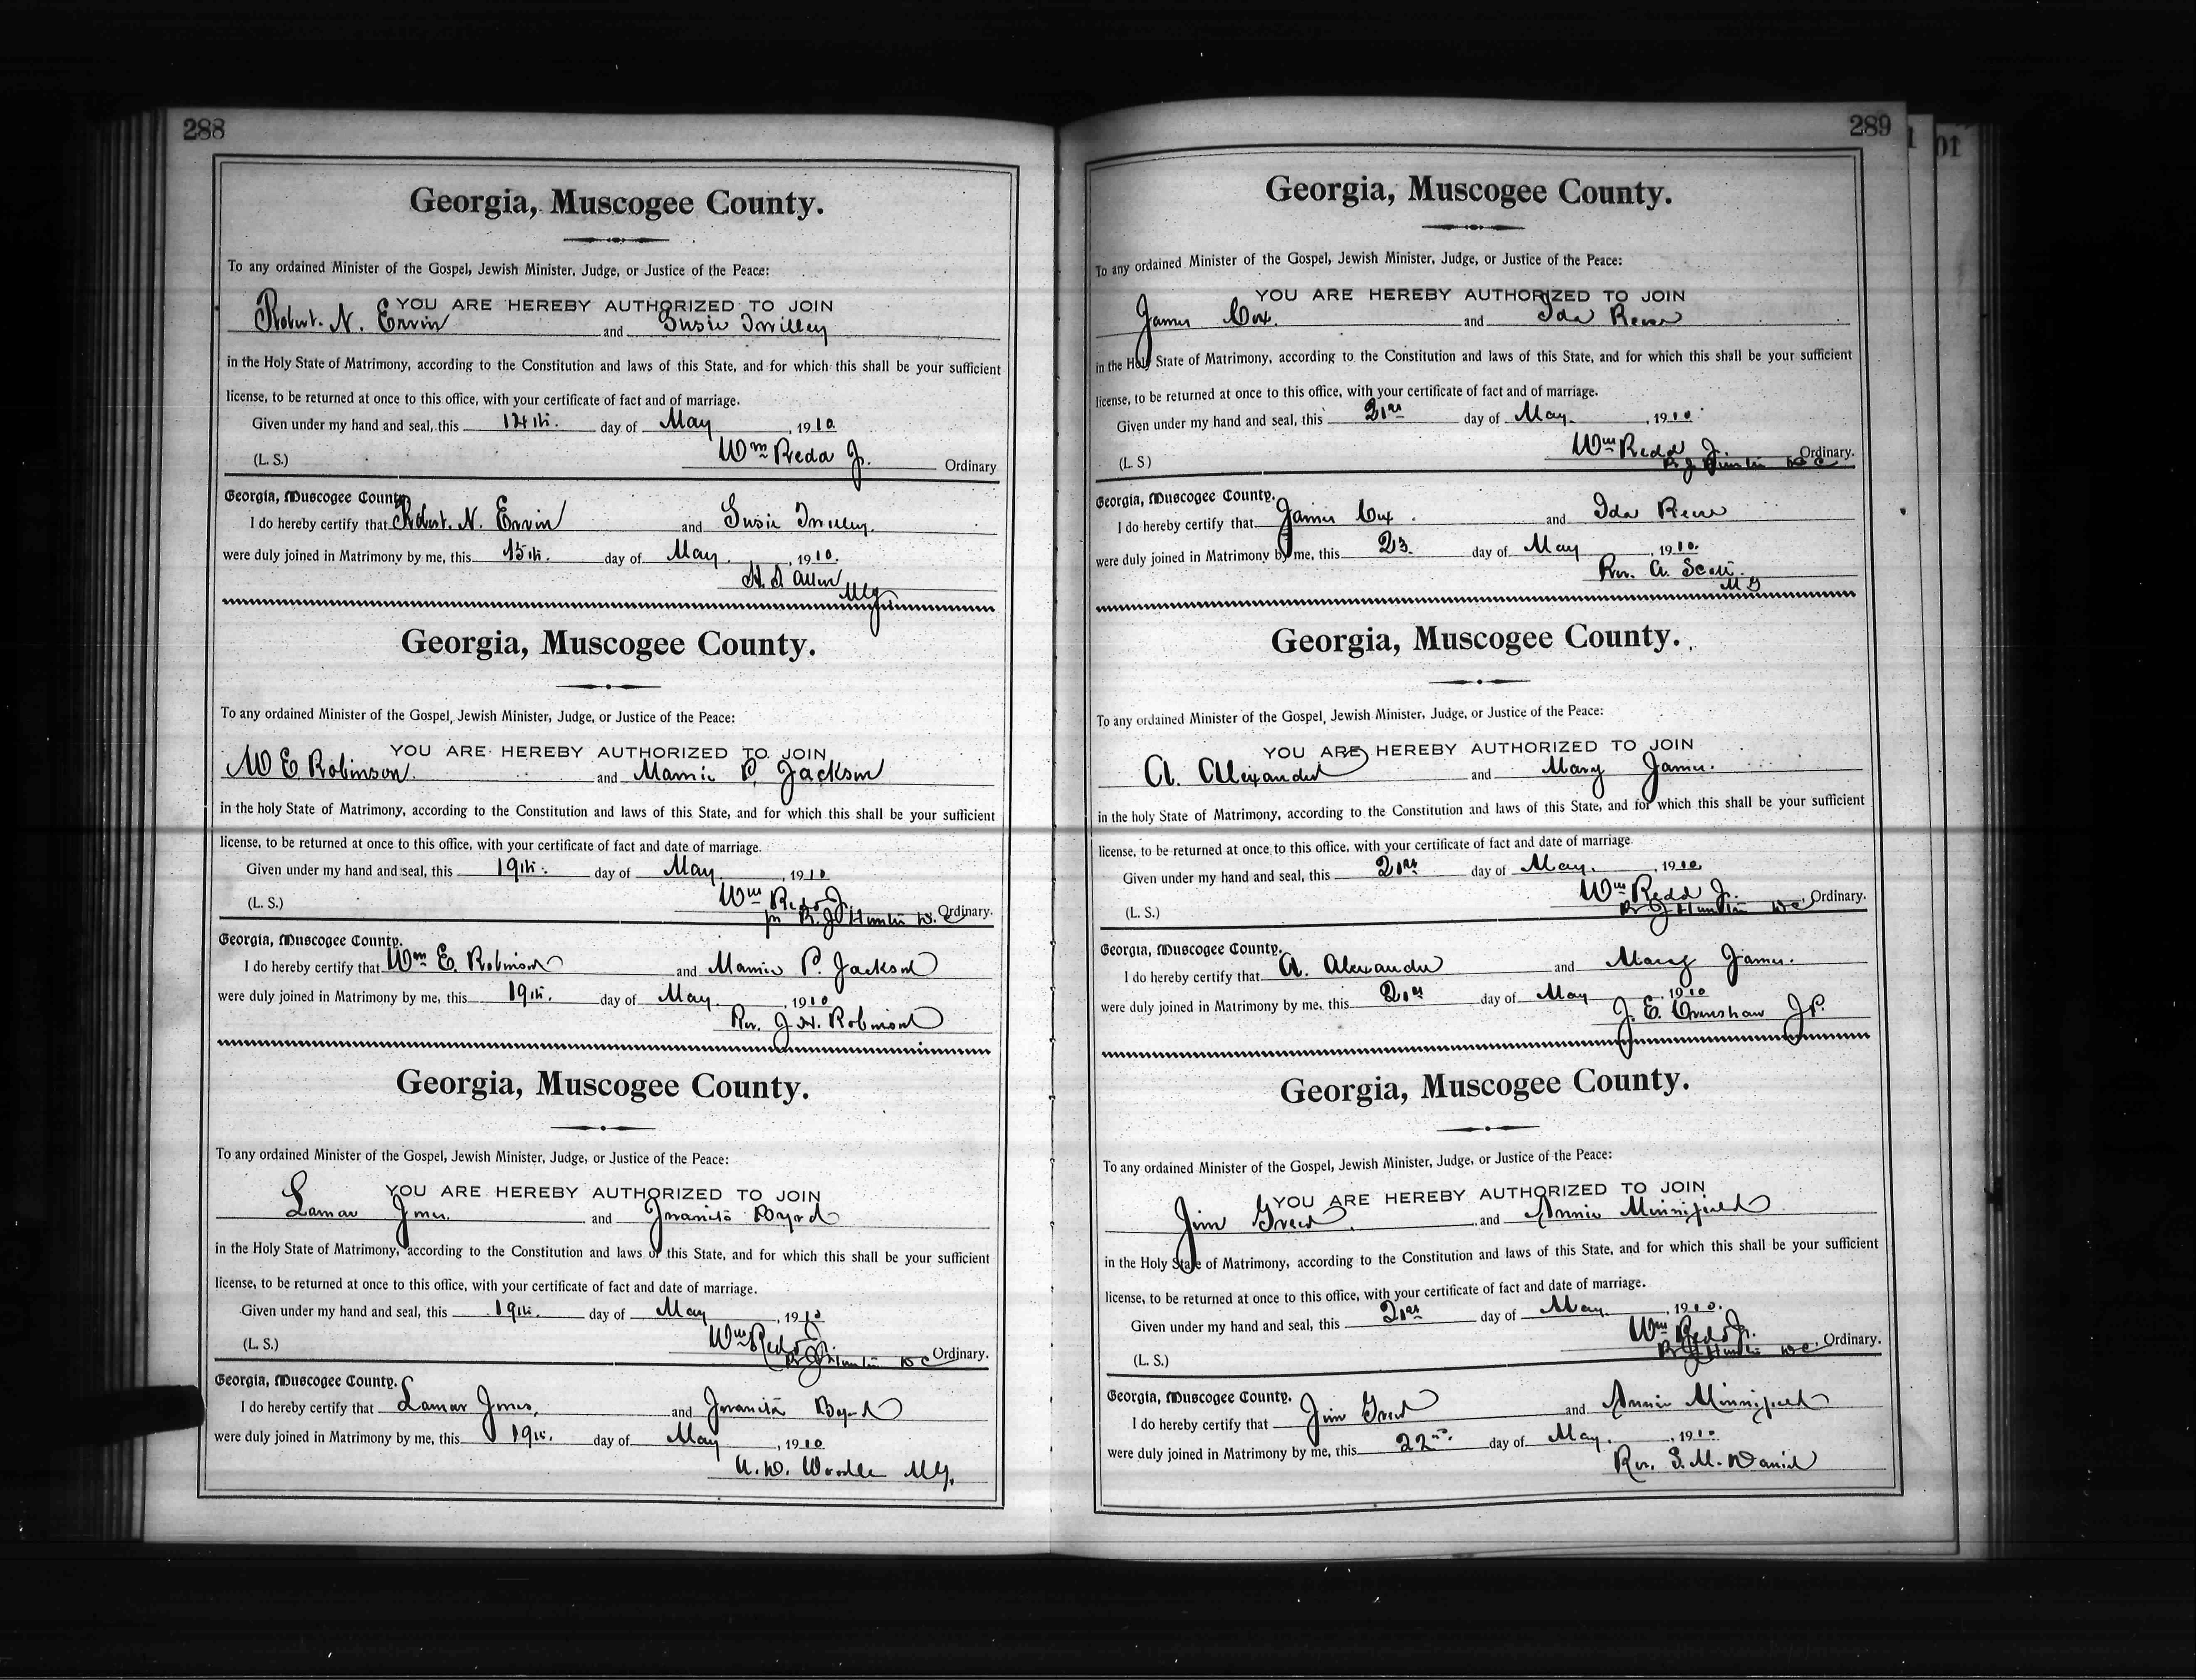 288
Georgia, Muscogee County.
To any ordained Minister of the Gospel, Jewish Minister, Judge, or Justice of the Peace:
YOU ARE HEREBY AUTHORIZED TO JOIN
Robert. N. Ervin and Susie
in the Holy State of Matrimony, according to the Constitution and laws of this State, and for which this shall be your sufficient
license, to be returned at once to this office, with your certificate of fact and of marriage.
Given under my hand and seal, this 14th. day of May, 1910.
Wm Redd Jr.
(L. S.) Ordinary
Georgia, Muscogee County.
I do hereby certify that Robert. N. Ervin and Susie
were duly joined in Matrimony by me, this 15th. day of May, 1910.
Allen
MG
Georgia, Muscogee County.
To any ordained Minister of the Gospel, Jewish Minister, Judge, or Justice of the Peace:
YOU ARE HEREBY AUTHORIZED TO JOIN
W E Robinson and Mamie P. Jackson
in the holy State of Matrimony, according to the Constitution and laws of this State, and for which this shall be your sufficient
license, to be returned at once to this office, with your certificate of fact and date of marriage.
Given under my hand and seal, this 19th. day of May, 1910
Wm Redd Jr.
(L. S.) Ordinary.
Georgia, Muscogee County.
I do hereby certify that Wm E. Robinson and Mamie P. Jackson
were duly joined in Matrimony by me, this 19th. day of May, 1910
Rev. J. H. Robinson
Georgia, Muscogee County.
To any ordained Minister of the Gospel, Jewish Minister, Judge, or Justice of the Peace:
YOU ARE HEREBY AUTHORIZED TO JOIN
Lamar Jones. and Juanita Byrd
in the Holy State of Matrimony, according to the Constitution and laws of this State, and for which this shall be your sufficient
license, to be returned at once to this office, with your certificate of fact and date of marriage.
Given under my hand and seal, this 19th. day of May, 1910
Wm Redd Jr.
(L. S.) Ordinary.
Georgia, Muscogee County.
I do hereby certify that Lamar Jones, and Juanita Byrd
were duly joined in Matrimony by me, this 19th. day of May, 1910
MG.
289
Georgia, Muscogee County.
To any ordained Minister of the Gospel, Jewish Minister, Judge, or Justice of the Peace:
YOU ARE HEREBY AUTHORIZED TO JOIN
James Cox. and Ida Reese
in the Holy State of Matrimony, according to the Constitution and laws of this State, and for which this shall be your sufficient
license, to be returned at once to this office, with your certificate of fact and of marriage.
Given under my hand and seal, this 21st day of May, 1910.
Wm Redd Jr.
(L. S) Ordinary.
Georgia, Muscogee County.
I do hereby certify that James Cox. and Ida Reese
were duly joined in Matrimony by me, this 23. day of May, 1910.
Rev. A. Scott.
MG
Georgia, Muscogee County.
To any ordained Minister of the Gospel, Jewish Minister, Judge, or Justice of the Peace:
YOU ARE HEREBY AUTHORIZED TO JOIN
A. Alexander and Mary James.
in the holy State of Matrimony, according to the Constitution and laws of this State, and for which this shall be your sufficient
license, to be returned at once to this office, with your certificate of fact and date of marriage
Given under my hand and seal, this 21st day of May, 1910,
Wm Redd Jr.
(L. S.) Ordinary.
Georgia, Muscogee County.
I do hereby certify that A. Alexander and Mary James.
were duly joined in Matrimony by me, this 21st day of May, 1910
J. E. Crenshaw J.P.
Georgia, Muscogee County.
To any ordained Minister of the Gospel, Jewish Minister, Judge, or Justice of the Peace:
YOU ARE HEREBY AUTHORIZED TO JOIN
Jim Greed and Annie Minnifield
in the Holy State of Matrimony, according to the Constitution and laws of this State, and for which this shall be your sufficient
license, to be returned at once to this office, with your certificate of fact and date of marriage.
Given under my hand and seal, this 21st day of May, 1910.
Wm Redd Jr.
(L. S.) Ordinary.
Georgia, Muscogee County.
I do hereby certify that Jim Greed and Annie Minnifield
were duly joined in Matrimony by me, this 22nd. day of May, 1910.
Rev. S. M. Daniel